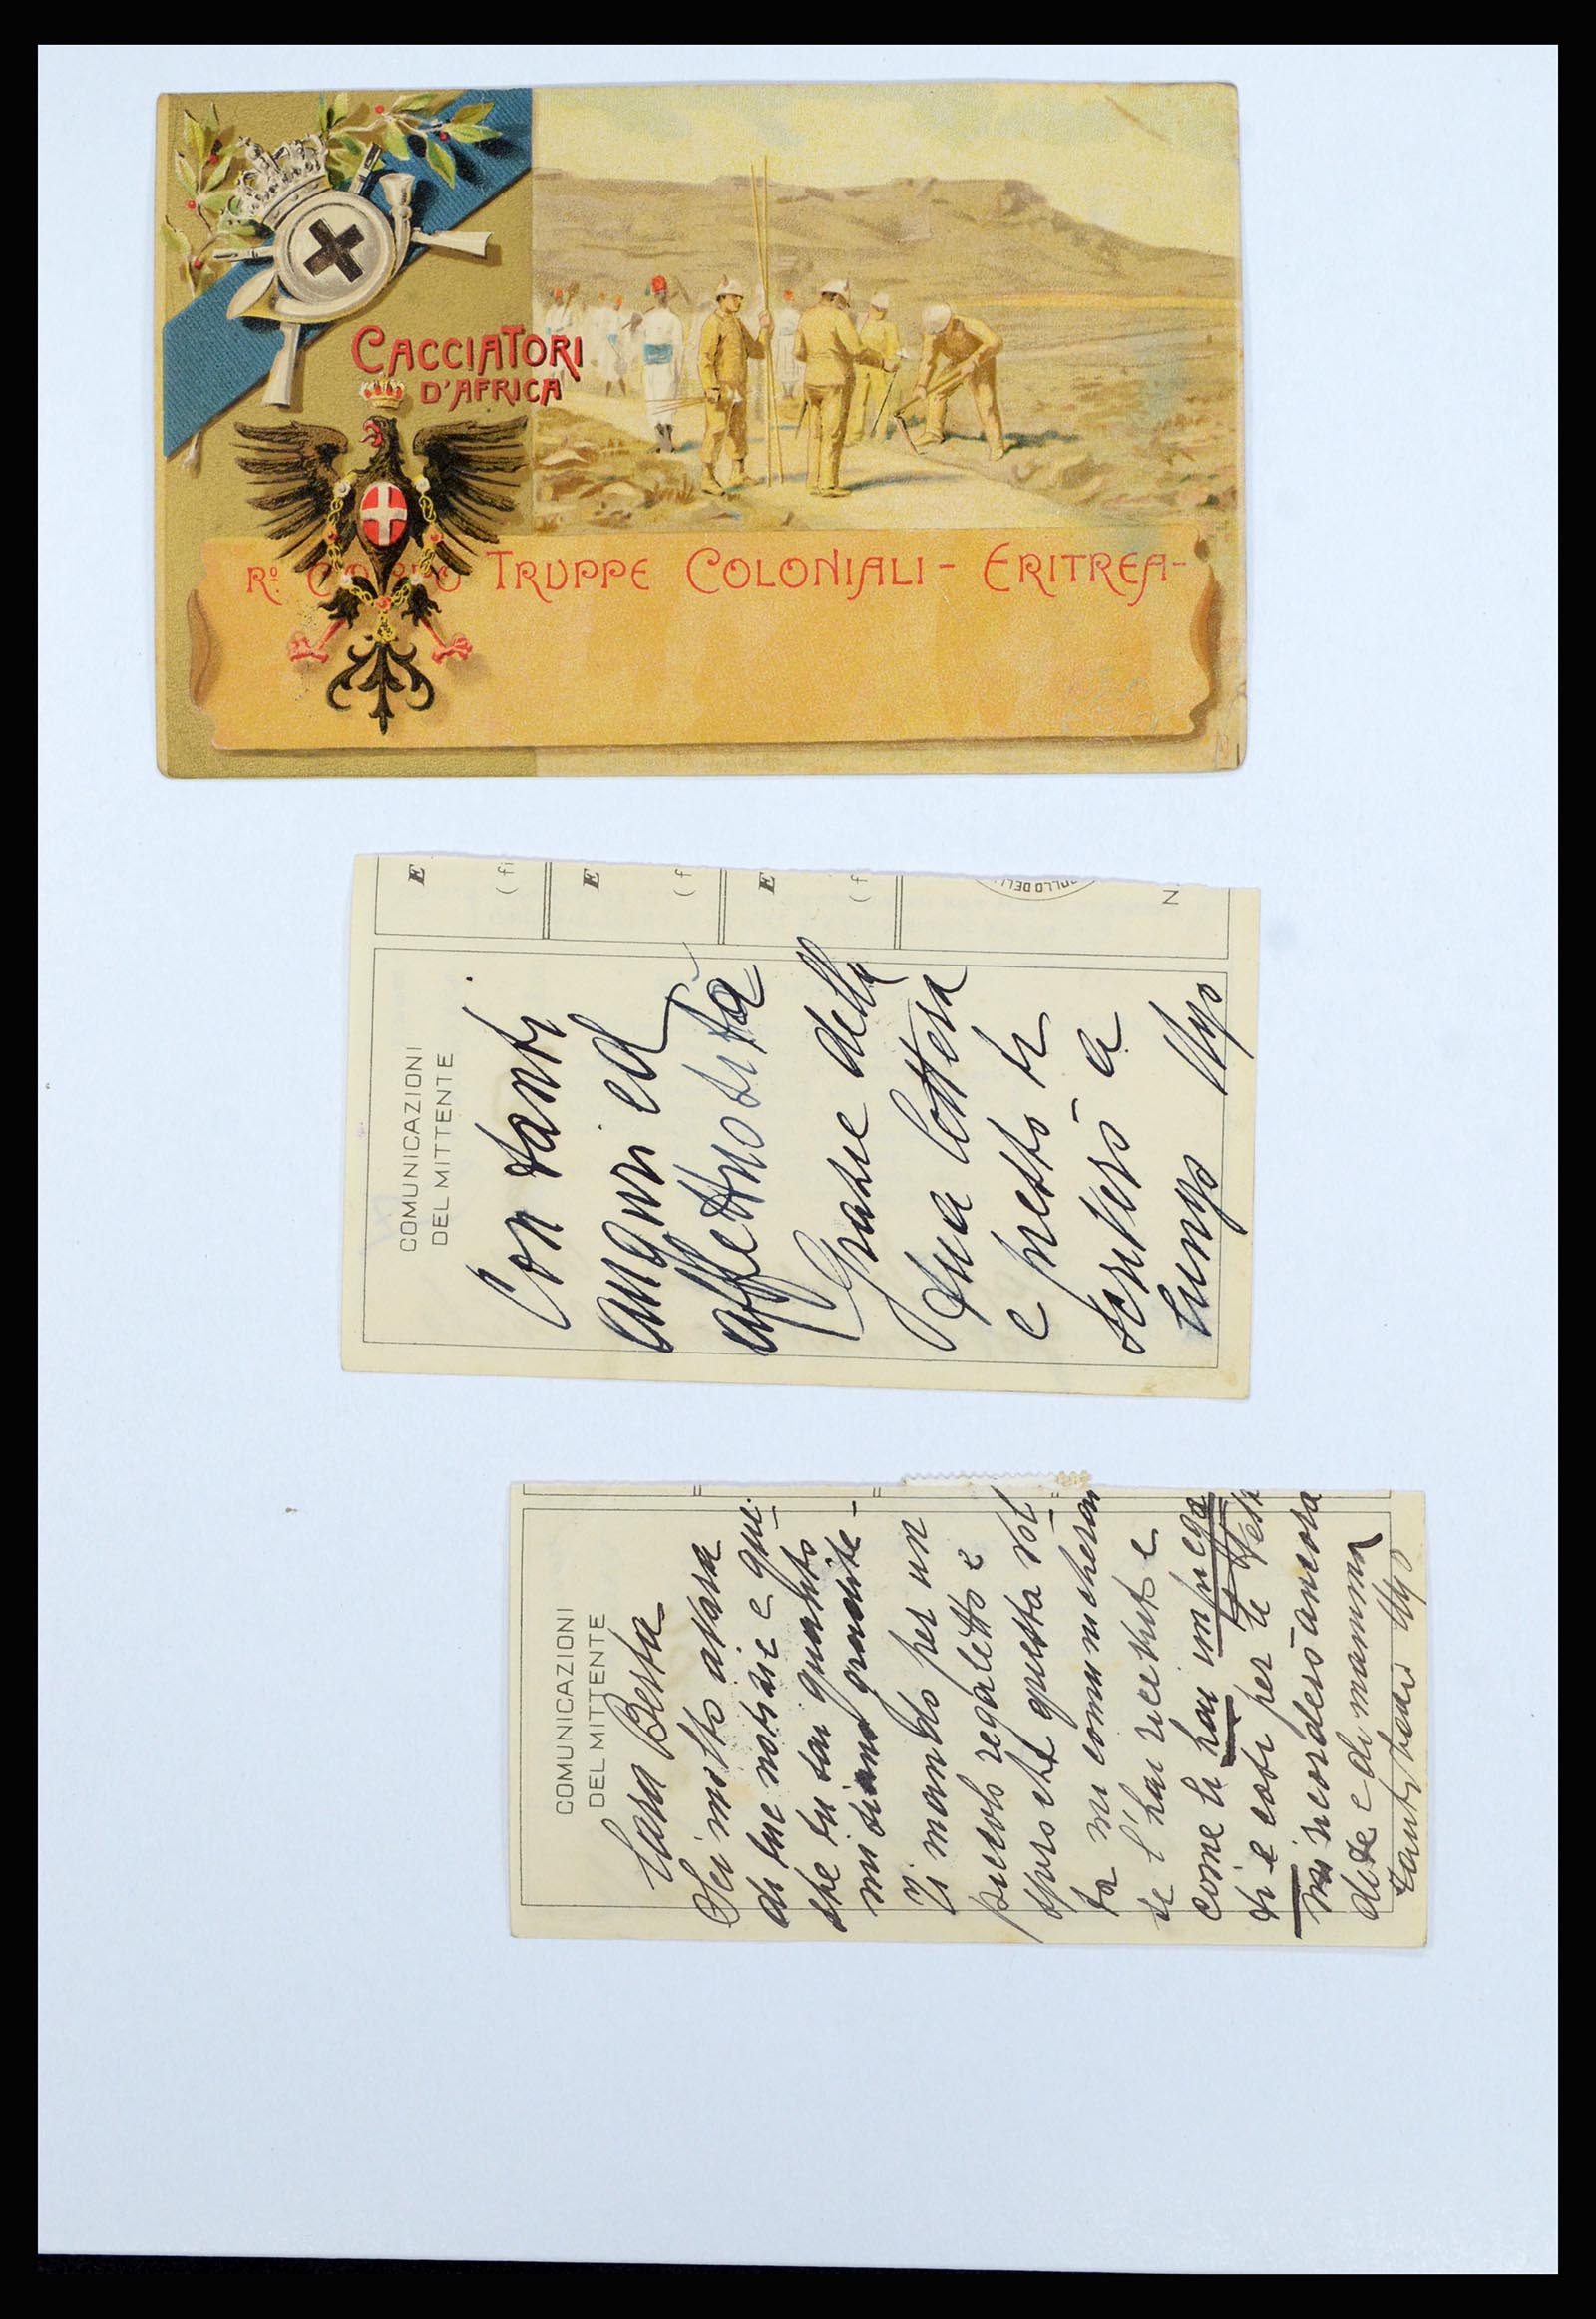 CACCIATORI
D'AFRICA
Rº. CORPO TRUPPE COLONIALI - ERITREA -
E
(fi
E
(f
E
(f
OLLO DELL
N
COMUNICAZIONI
DEL MITTENTE
Con tanti
auguri ed
affettuosità
Grazie della
tua lettera
e presto ti
scriverò a
lungo Ugo
COMUNICAZIONI
DEL MITTENTE
Cara Berta
Sei molto avara
di tue notizie e pure
che tu sai quanto
mi siano gradite -
Ti mando per un
piccolo regaletto e
spero che questa vol-
ta mi comunicherai
se l'hai ricevuto e
come li hai impiega
ti e così per te
mi ricorderò ancora
di te e di mamma
Tanti baci Ugo